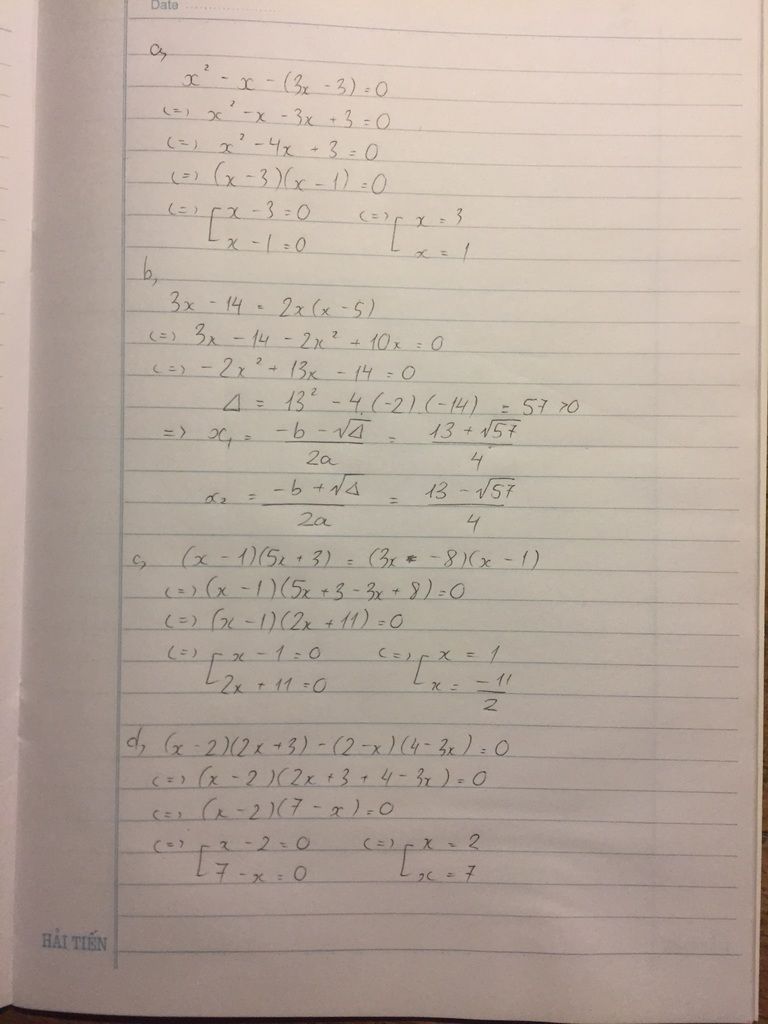 Date
a,
x² - x - (3x - 3) = 0
<=> x² - x - 3x + 3 = 0
<=> x² - 4x + 3 = 0
<=> (x - 3)(x - 1) = 0
<=> [ x - 3 = 0 <=> [ x = 3
x - 1 = 0 x = 1
b,
3x - 14 = 2x(x - 5)
<=> 3x - 14 - 2x² + 10x = 0
<=> -2x² + 13x - 14 = 0
Δ = 13² - 4.(-2).(-14) = 57 > 0
=> x₁ = (-b - √Δ)/2a = (13 + √57)/4
x₂ = (-b + √Δ)/2a = (13 - √57)/4
c, (x - 1)(5x + 3) = (3x - 8)(x - 1)
<=> (x - 1)(5x + 3 - 3x + 8) = 0
<=> (x - 1)(2x + 11) = 0
<=> [ x - 1 = 0 <=> [ x = 1
2x + 11 = 0 x = -11/2
d, (x - 2)(2x + 3) - (2 - x)(4 - 3x) = 0
<=> (x - 2)(2x + 3 + 4 - 3x) = 0
<=> (x - 2)(7 - x) = 0
<=> [ x - 2 = 0 <=> [ x = 2
7 - x = 0 x = 7
HẢI TIẾN